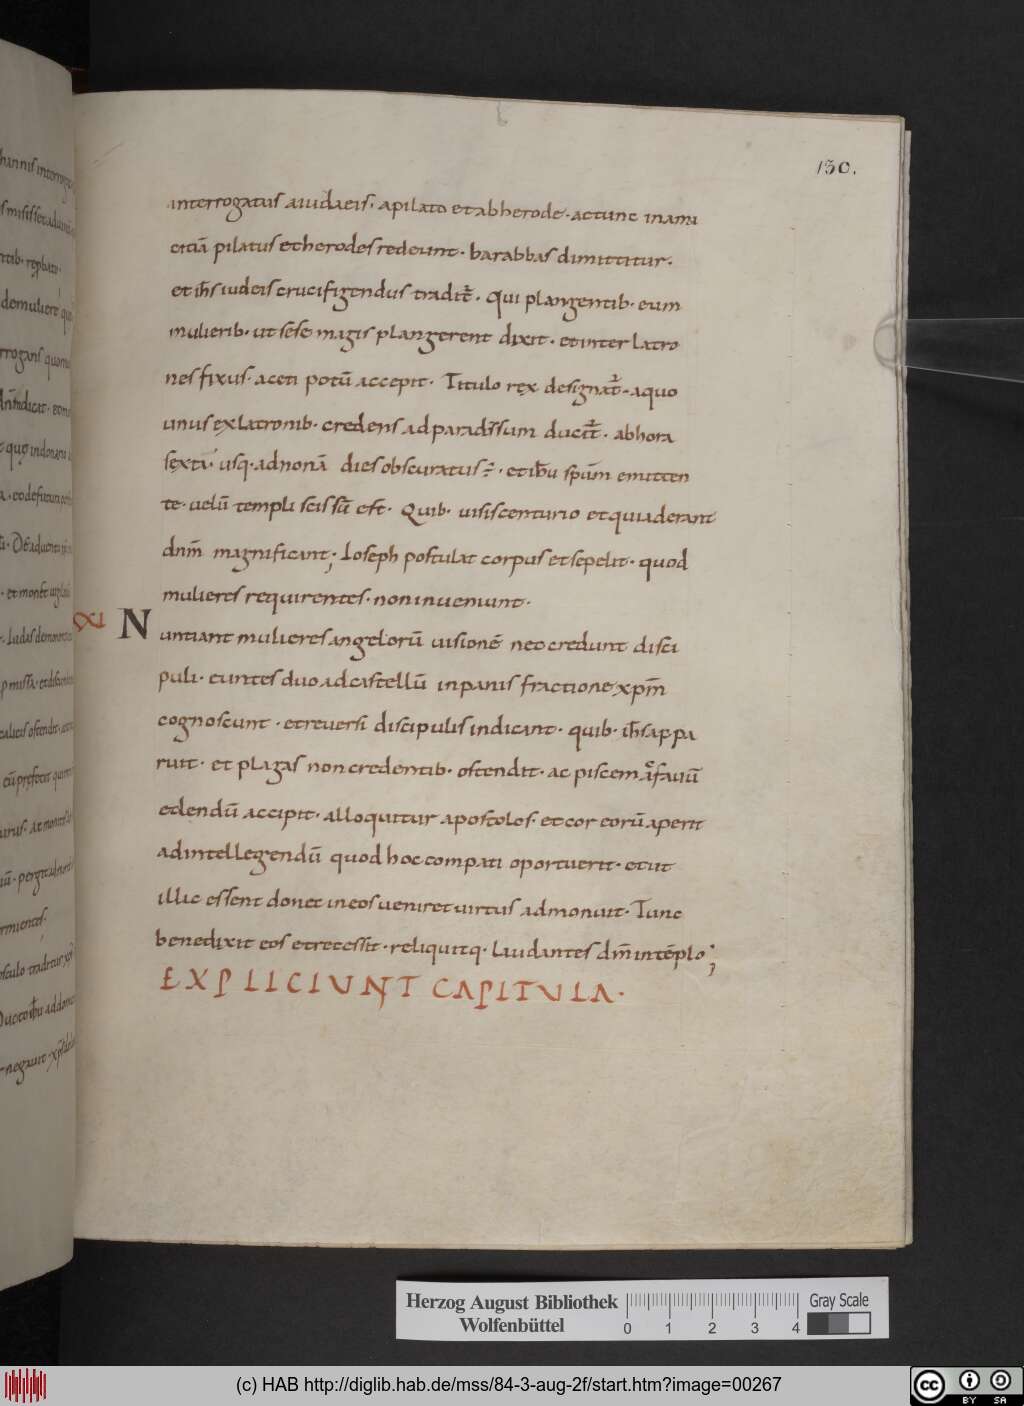 130.
interrogatus aiudaeis· apilato et abherode· ac tunc inami
citiā pilatus et herodes redeunt· barabbas dimittitur·
et ih̄s iudeis crucifigendus tradit̄· Qui plangentib· eum
mulierib· ut sese magis plangerent dixit· et inter latro
nes fixus· aceti potū accepit· Titulo rex designat̄· aquo
unus ex latronib· credens ad paradisum ducit̄· ab hora
sexta usq· ad nonā dies obscuratus ÷· et ih̄u sp̄m emitten
te· uelū templi scissū est· Quib· uisis centurio et qui aderant
dn̄m magnificant; Ioseph postulat corpus et sepelit· quod
mulieres requirentes· non inueniunt·
XI Nuntiant mulieres angelorū uisionē nec credunt disci
puli· euntes duo ad castellū in panis fractione xp̄m
cognoscunt· et reuersi discipulis indicant· quib· ih̄s appa
ruit· et plagas non credentib· ostendit· ac piscem & fauū
edendū accipit· alloquitur apostolos· et cor eorū aperit
ad intellegendū quod hoc eum pati oportuerit· et ut
illic essent donec in eos ueniret uirtus admonuit· Tunc
benedixit eos et recessit· reliquitq· laudantes dm̄ in tēplo;
EXPLICIUNT CAPITULA·
Herzog August Bibliothek
Wolfenbüttel
Gray Scale
0 1 2 3 4
(c) HAB http://diglib.hab.de/mss/84-3-aug-2f/start.htm?image=00267
cc BY SA